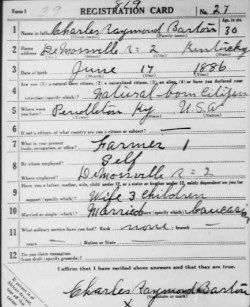 Form 1 39 819 No. 27
REGISTRATION CARD
1 Name in full Charles Raymond Barton Age, in yrs. 30
2 Home address DeMossville R=2 Kentucky
3 Date of birth June 17 1886
4 Natural born Citizen
5 Where were you born? Pendleton Ky U.S.A
6 If not a citizen, of what country are you a citizen or subject?
7 What is your present trade, occupation, or office? Farmer 1
8 By whom employed? Self
Where employed? DeMossville R=2
9 Have you a father, mother, wife, child under 12, or a sister or brother under 12, solely dependent on you for support (specify which)? Wife 3 Children
10 Married or single (which)? Married Race (specify which)? Caucasian
11 What military service have you had? Rank none ; branch
years ; Nation or State
12 Do you claim exemption from draft (specify grounds)?
I affirm that I have verified above answers and that they are true.
Charles Raymond Barton
X